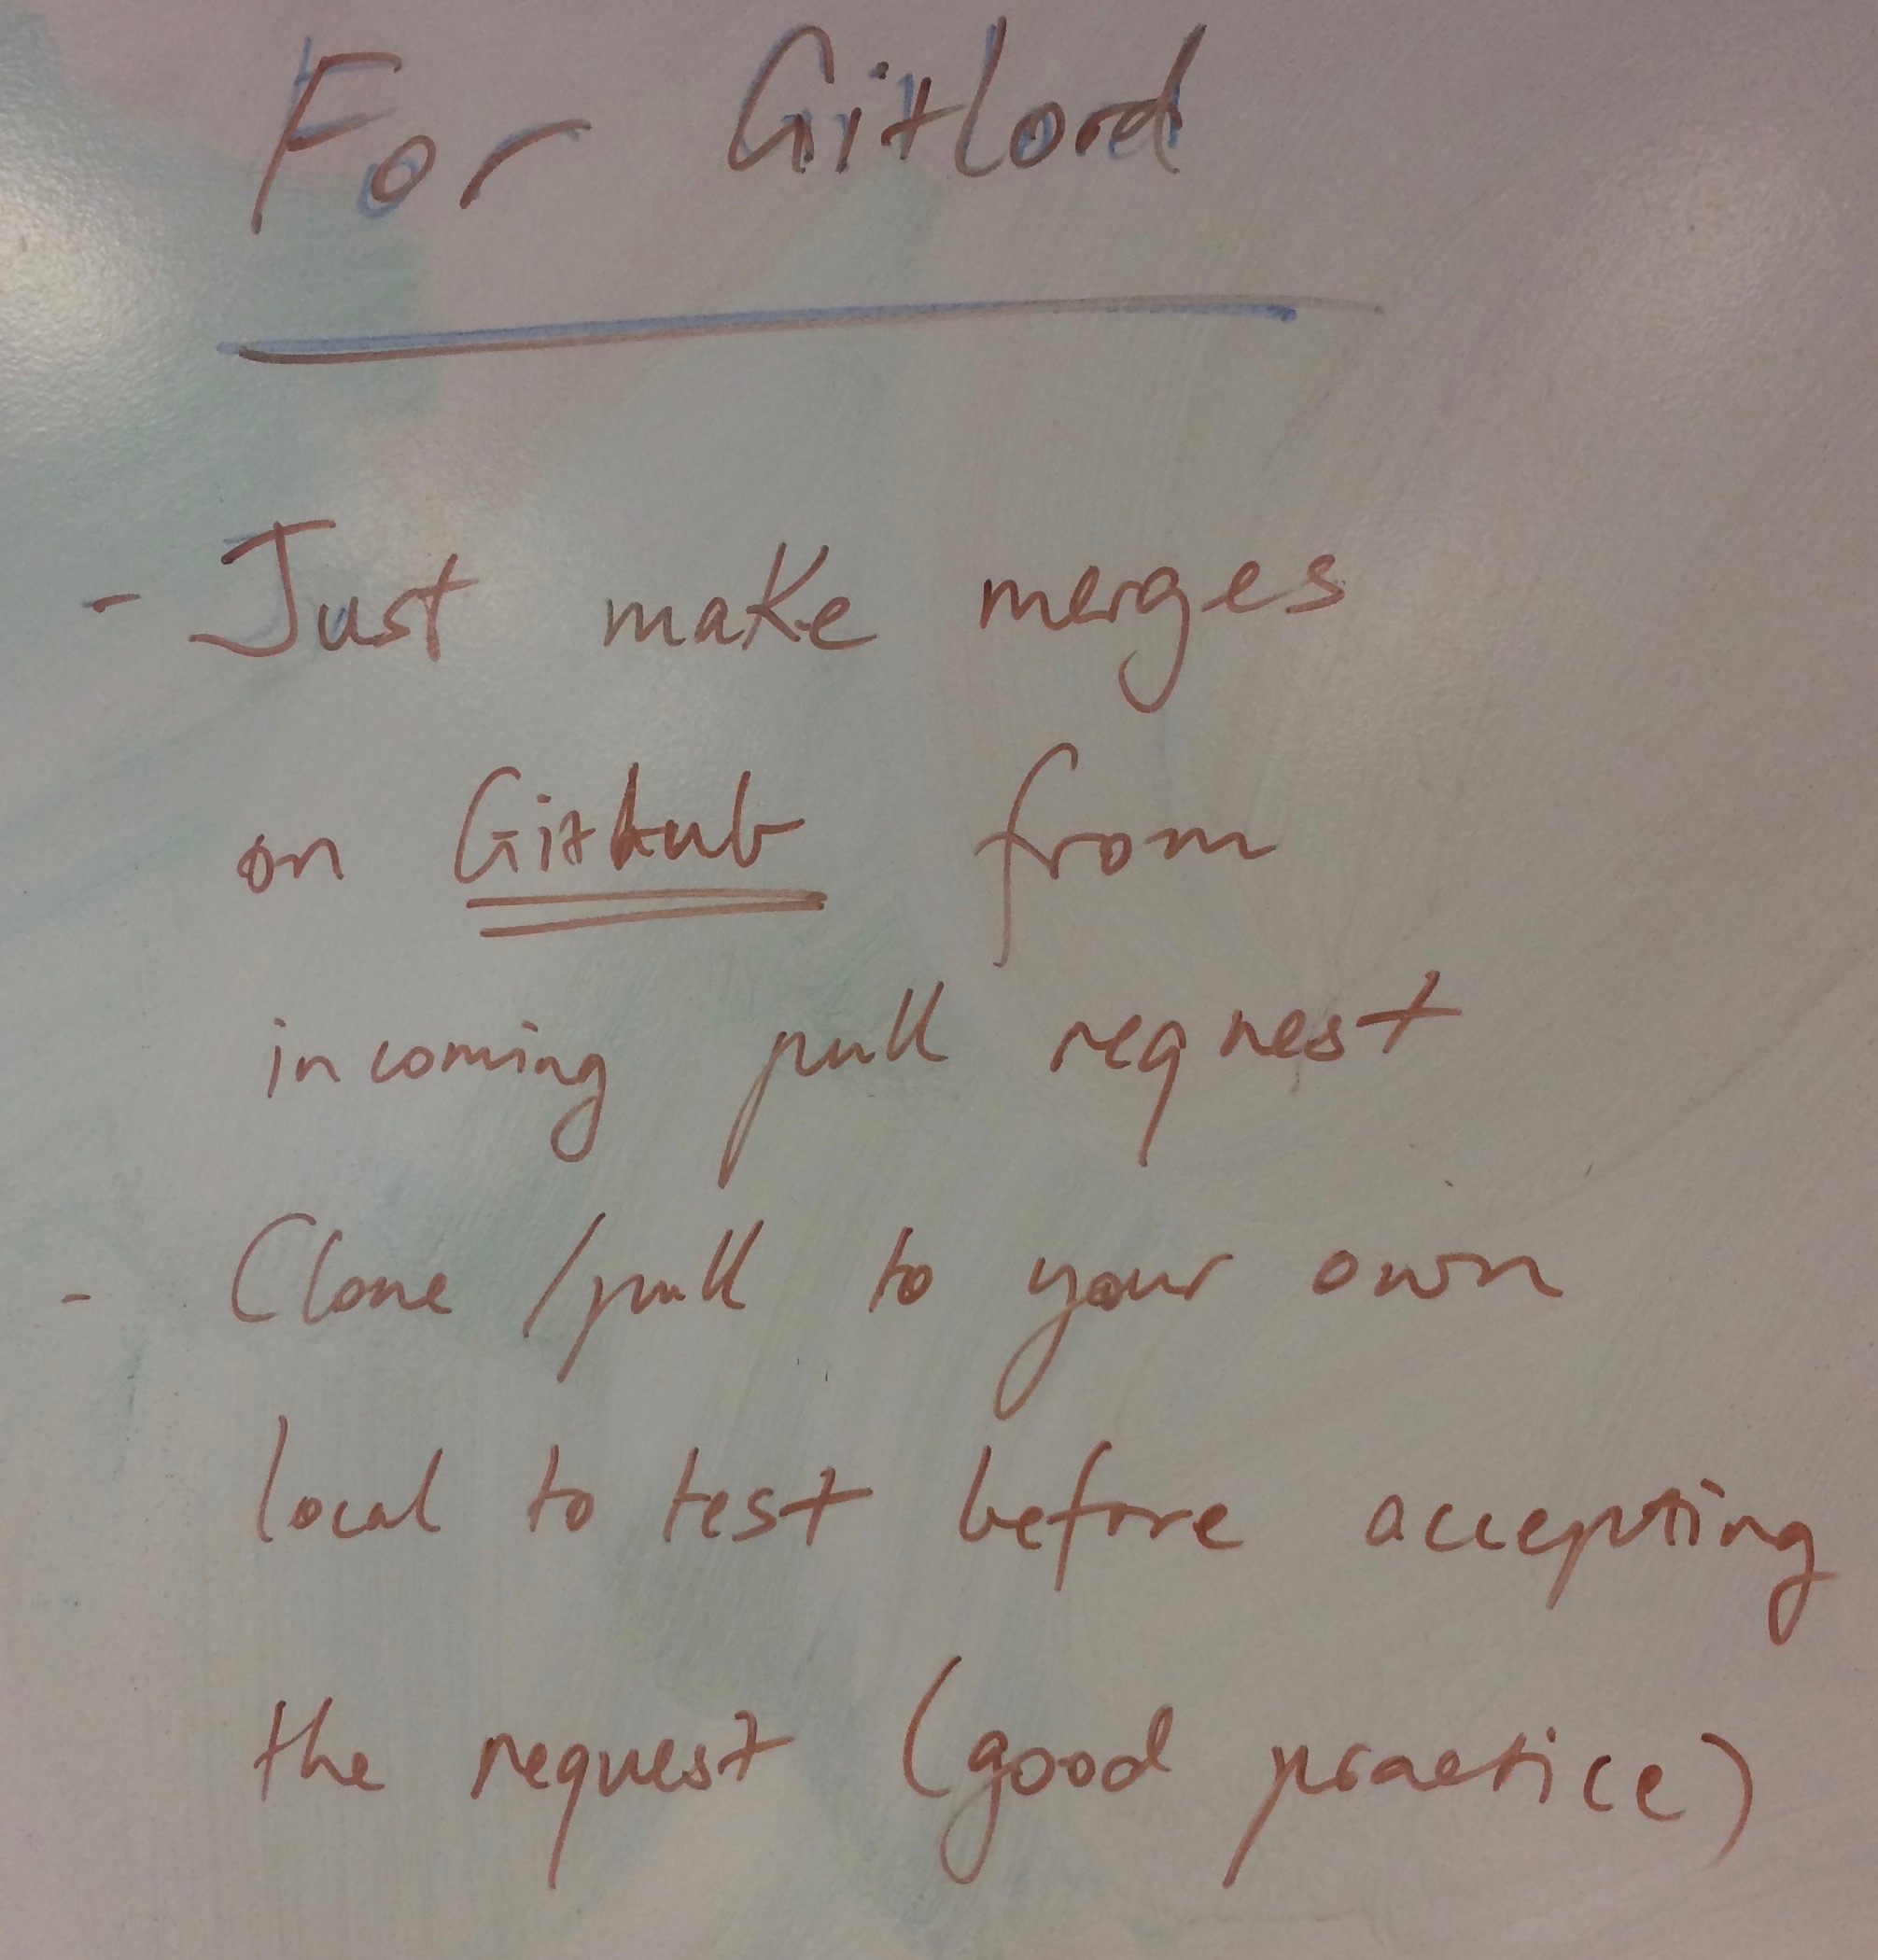 For Gitlord
- Just make merges
on Github from
incoming pull request
- Clone/pull to your own
local to test before accepting
the request (good practice)